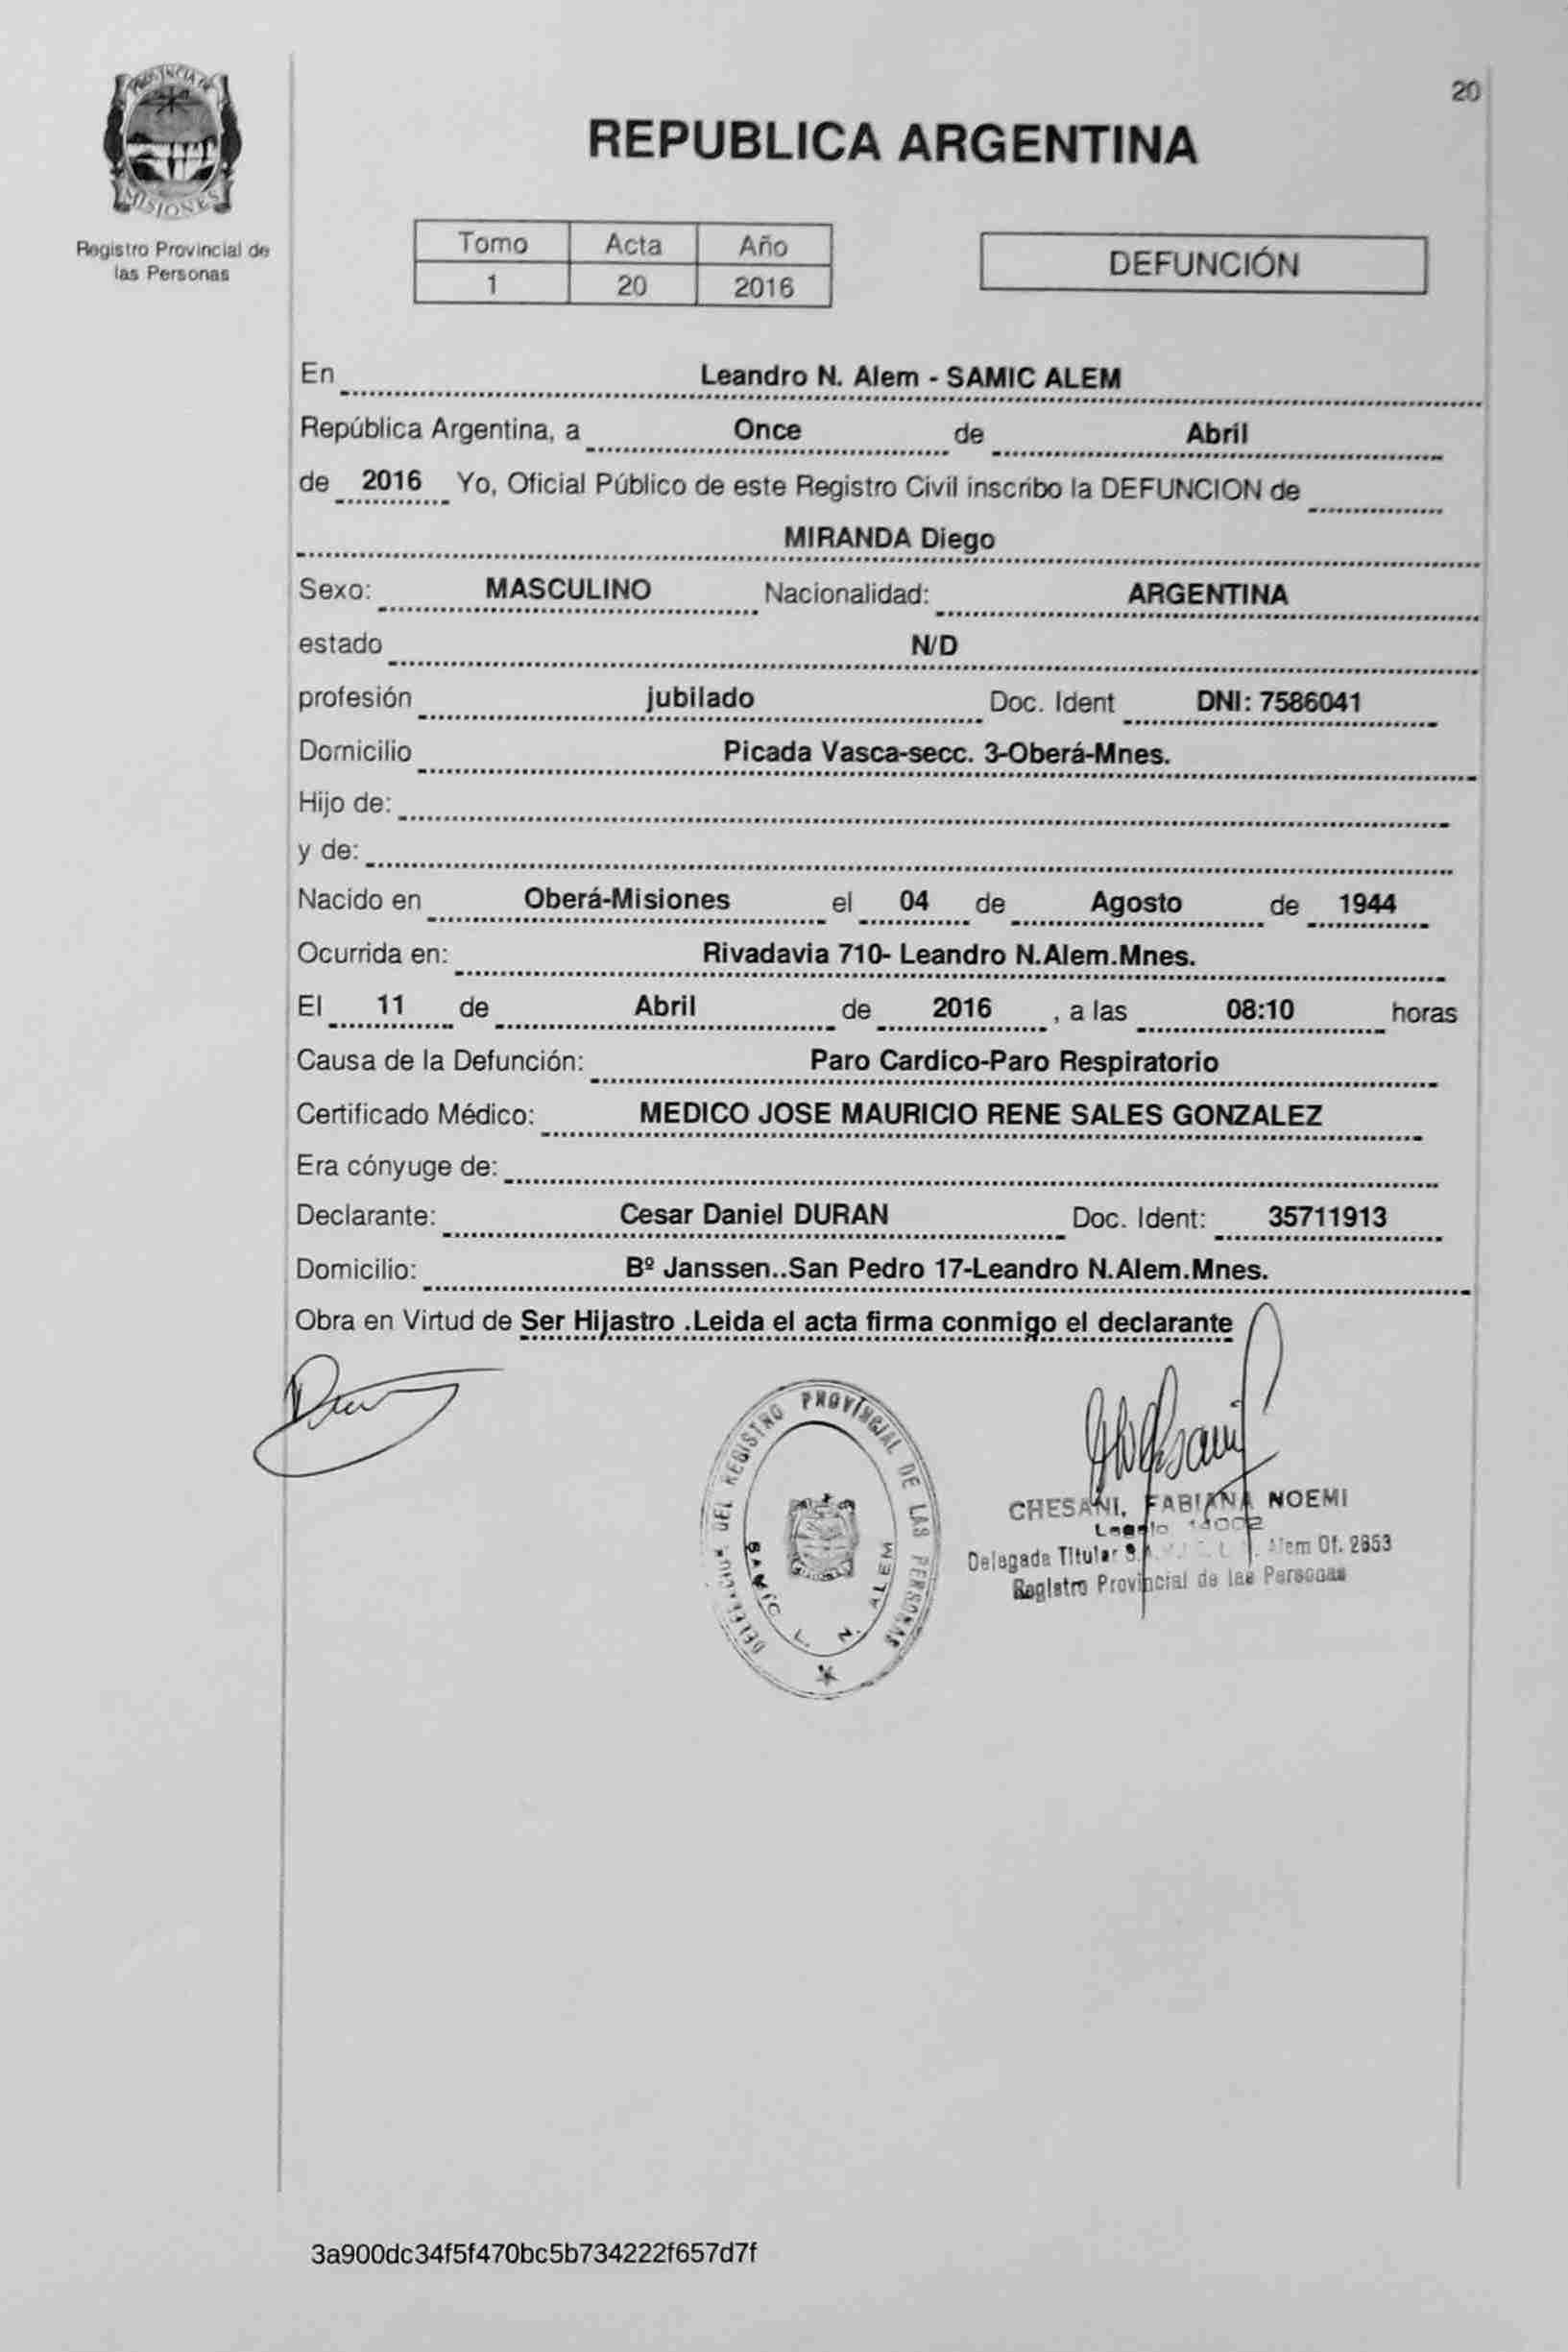 20
PROVINCIA DE
MISIONES
Registro Provincial de
las Personas
REPUBLICA ARGENTINA
Tomo Acta Año
1 20 2016
DEFUNCIÓN
En Leandro N. Alem - SAMIC ALEM
República Argentina, a Once de Abril
de 2016 Yo, Oficial Público de este Registro Civil inscribo la DEFUNCION de
MIRANDA Diego
Sexo: MASCULINO Nacionalidad: ARGENTINA
estado N/D
profesión jubilado Doc. Ident DNI: 7586041
Domicilio Picada Vasca-secc. 3-Oberá-Mnes.
Hijo de:
y de:
Nacido en Oberá-Misiones el 04 de Agosto de 1944
Ocurrida en: Rivadavia 710- Leandro N.Alem.Mnes.
El 11 de Abril de 2016 , a las 08:10 horas
Causa de la Defunción: Paro Cardico-Paro Respiratorio
Certificado Médico: MEDICO JOSE MAURICIO RENE SALES GONZALEZ
Era cónyuge de:
Declarante: Cesar Daniel DURAN Doc. Ident: 35711913
Domicilio: Bº Janssen..San Pedro 17-Leandro N.Alem.Mnes.
Obra en Virtud de Ser Hijastro .Leida el acta firma conmigo el declarante
DEL REGISTRO PROVINCIAL DE LAS PERSONAS
SAMIC L. N. ALEM
CHESANI, FABIANA NOEMI
Delegada Titular Alem Of. 2653
Registro Provincial de las Personas
3a900dc34f5f470bc5b734222f657d7f